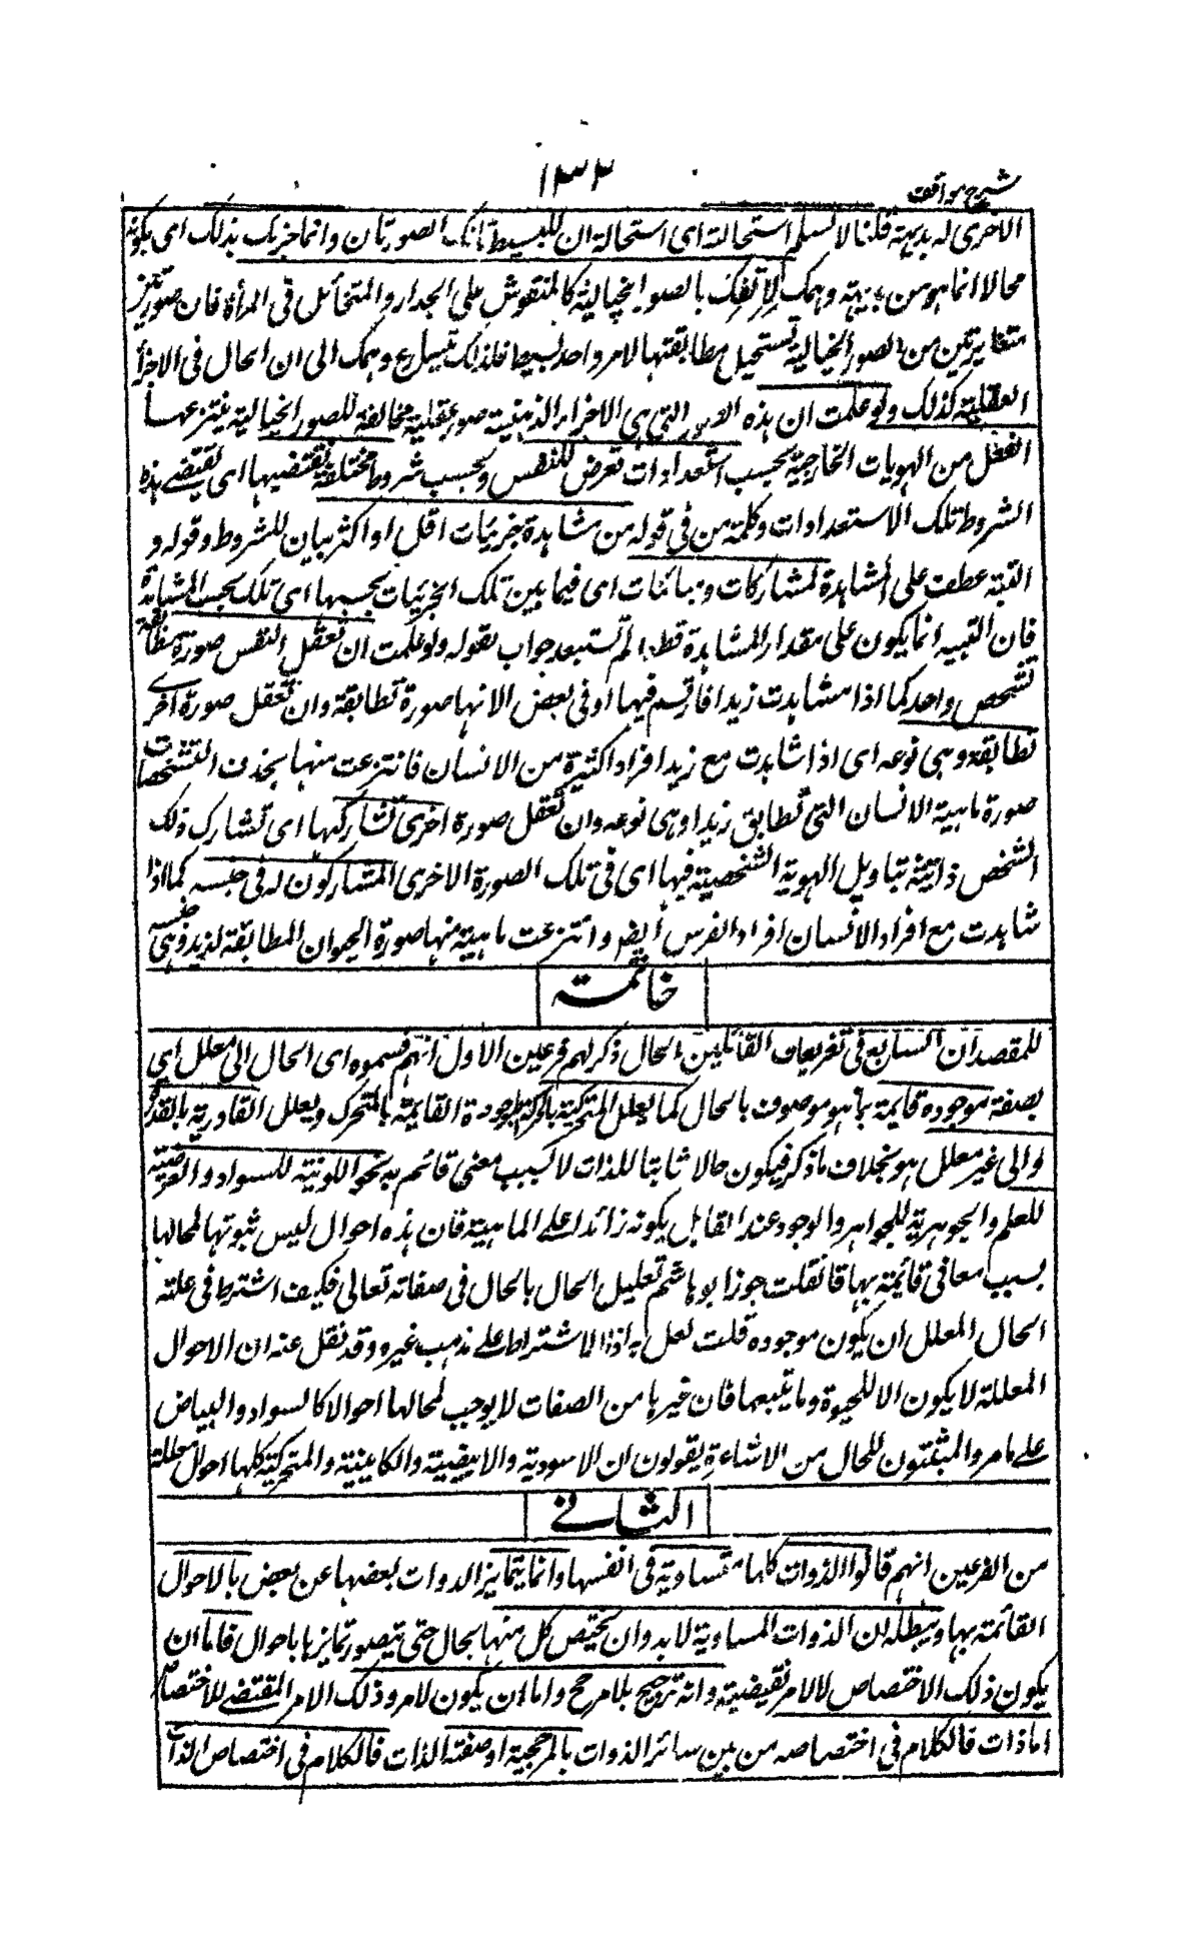 شرح مواقف
١٣٢
الاخرى له بديهة قلنا لا نسلم استحالته اى استحالة ان للبسيط تانك الصورتان وانما خبرك بذلك اى بكونه
محالا انما هو من بديهته وهمك لالفك بالصور الخيالية كالمنقوش على الجدار والمتخائل فى المرأة فان صورتين
متغايرتين من الصور الخيالية تستحيل مطابقتهما لامر واحد بسيط فلذلك تسارع وهمك الى ان الحال فى الاجزأ
العقلية كذلك ولو علمت ان هذه الصور التى هى الاجزاء الذهنية صور عقلية مخالفة للصور الخيالية ينتزعها
العقل من الهويات الخارجية بحسب استعدادات تعرض للنفس وبحسب شروط مختلفة تقتضيها اى تقتضى هذه
الشروط تلك الاستعدادات وكلمة من فى قوله من مشاهدة جزئيات اقل او اكثر بيان للشروط وقوله و
التنبه عطف على المشاهدة لمشاركات ومبائنات اى فيما بين تلك الجزئيات بحسبها اى تلك بحسب المشاهدة
فان التنبيه انما يكون على مقدار المشاهدة قطعا لم تستبعد جواب لقوله ولو علمت ان تعقل النفس صورة مطابقة
لشخص واحد كما اذا شاهدت زيدا فارتسم فيها او فى بعض الاتها صورة تطابقه وان تعقل صورة اخرى
تطابقه وهى نوعه اى اذا شاهدت مع زيد افرادا كثيرة من الانسان فانتزعت منها بحذف التشخصات
صورة ماهية الانسان التى تطابق زيدا وهى نوعه وان تعقل صورة اخرى تشاركها اى تشارك ذلك
الشخص ذاتيته بتاويل الهوية الشخصية فيها اى فى تلك الصورة الاخرى المشاركون له فى جنسه كما اذا
شاهدت مع افراد الانسان افراد الفرس ايضا وانتزعت ماهية منها صورة الحيوان المطابقة لزيد وهى جنسه
خاتمة
للمقصد ان السابع فى تفريعات القائلين بالحال ذكر لهم فرعين الاول انهم قسموه اى الحال الى معلل اى
بصفة موجودة قائمة بما هو موصوف بالحال كما يعلل المتحركية بالحركة الموجودة القائمة بالمتحرك ويعلل القادرية بالقدرة
والى غير معلل هو بخلاف ما ذكر فيكون حالا ثابتا للذات لا بسبب معنى قائم به نحو اللونية للسواد والعرضية
للعلم والجوهرية للجواهر والوجود عند القابل بكونه زائدا على الماهية فان هذه احوال ليس ثبوتها لمحالها
بسبب معانى قائمة بها فان قلت جوز ابو هاشم تعليل الحال بالحال فى صفاته تعالى فكيف اشترط فى علته
الحال المعلل ان يكون موجوده قلت لعل هذا الاشتراط على مذهب غيره وقد نقل عنه ان الاحوال
المعللة لا يكون الا للحيوة وما يتبعها فان غيرها من الصفات لا يوجب لمحالها احوالا كالسواد والبياض
على ما مر والمثبتون للحال من الاشاعرة يقولون ان الاسودية والابيضية والكاينية والمتحركية كلها احوال معللة
الثانى
من الفرعين انهم قالوا الذوات كلها متساوية فى انفسها وانما يتمايز الذوات بعضها عن بعض بالاحوال
القائمة بها ويبطله ان الذوات المساوية لا بد وان يختص كل منها بحال حتى يتصور تمايزها باحوال فاما ان
يكون ذلك الاختصاص لا لامر تقيضيه وانه ترجيح بلا مرجح واما ان يكون لامر وذلك الامر المقتضى للاختصاص
اما ذات فالكلام فى اختصاصه من بين سائر الذوات بالمرجحية او صفة الذات فالكلام فى اختصاص الذات